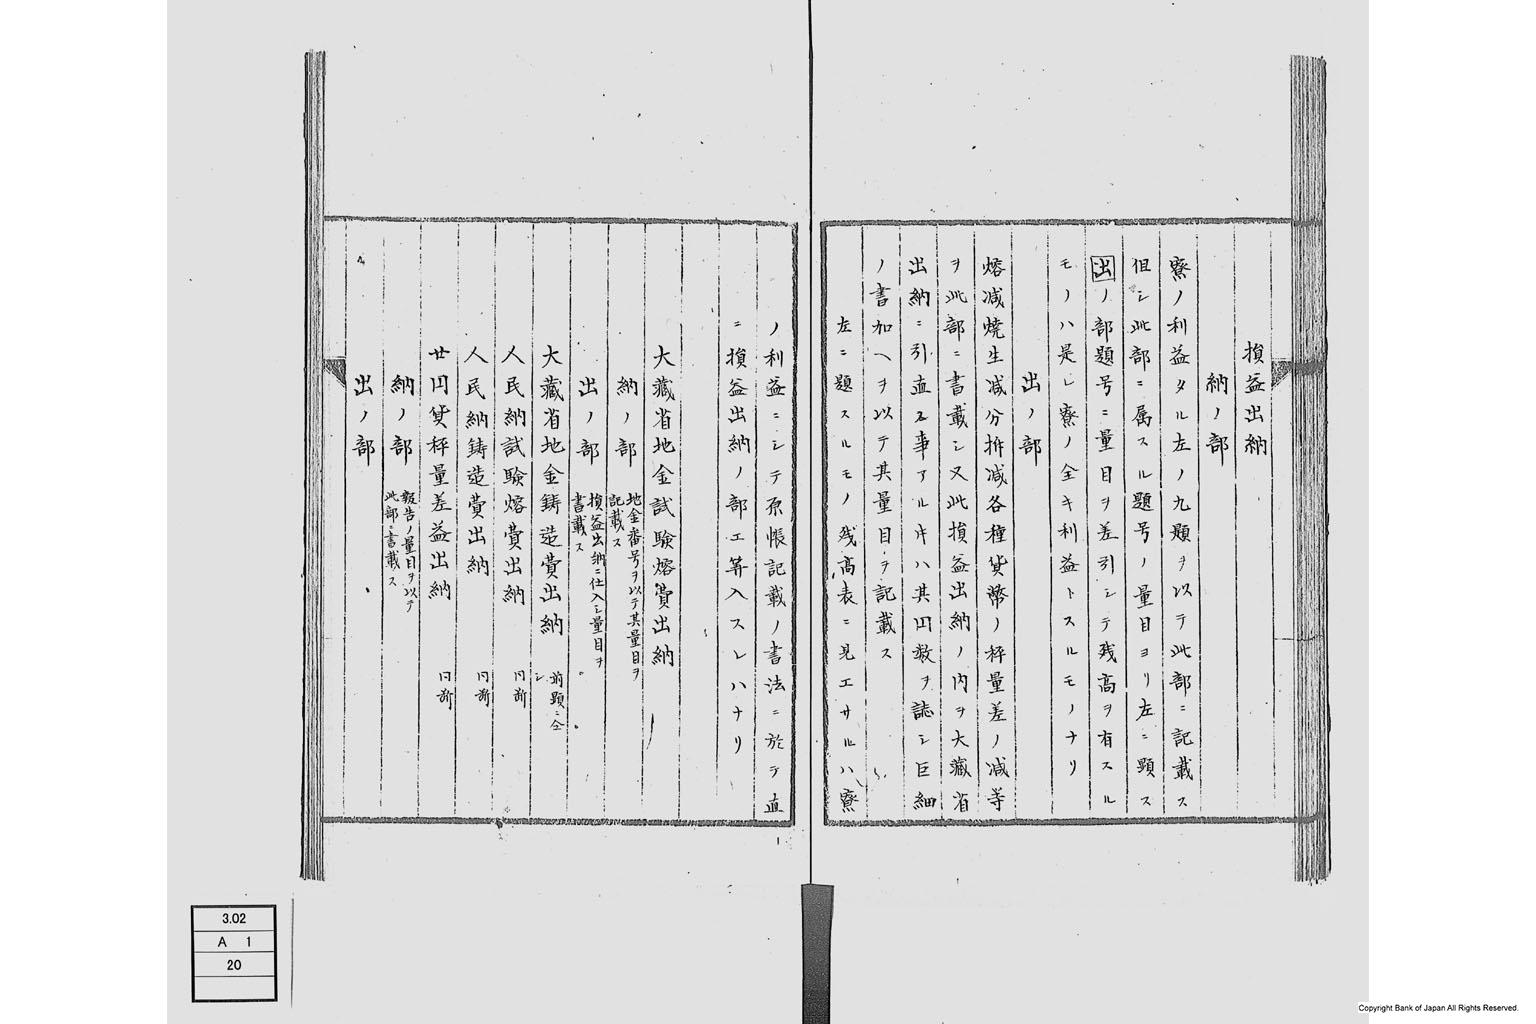 損益出納
納ノ部
寮ノ利益タル左ノ九題ヲ以テ此部ニ記載ス
但シ此部ニ属スル題号ノ量目ヨリ左ニ顕ス
出ノ部題号ニ量目ヲ差引シテ残高ヲ有スル
モノハ是レ寮ノ全キ利益トスルモノナリ
出ノ部
熔减焼生减分拆减各種貨幣ノ秤量差ノ减等
ヲ此部ニ書載シ又此損益出納ノ内ヲ大藏省
出納ニ引直ル事アル片ハ其円数ヲ誌シ巨細
ノ書加ヘヲ以テ其量目ヲ記載ス
左ニ題スルモノ残高表ニ見エサルハ寮
ノ利益ニシテ原帳記載ノ書法ニ於テ直
ニ損益出納ノ部エ算入スレハナリ
大藏省地金試験熔費出納
納ノ部 地金番号ヲ以テ其量目ヲ
記載ス
出ノ部 損益出納ニ仕入シ量目ヲ
書載ス
大藏省地金鋳造費出納 前顕ニ仝
シ
人民納試験熔費出納 同前
人民納鋳造費出納 同前
廿円貨秤量差益出納 同前
納ノ部 報告ノ量目ヲ以テ
此部ニ書載ス
出ノ部
3.02
A 1
20
Copyright Bank of Japan All Rights Reserved.